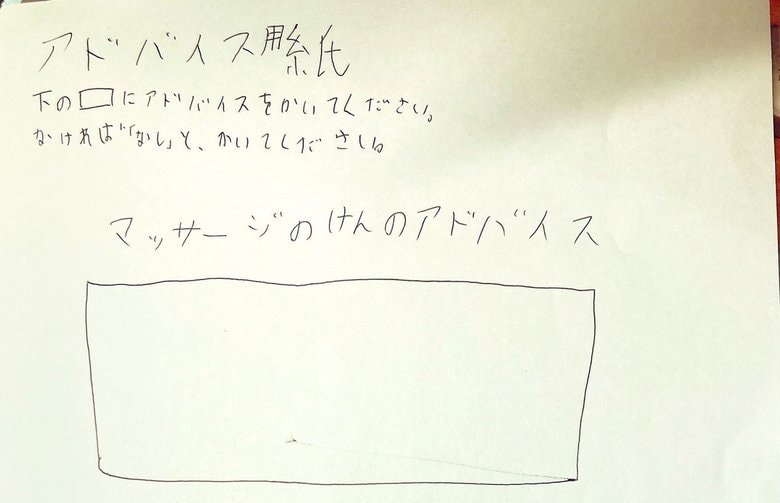 アドバイス用紙
下の□にアドバイスをかいてください。
なければ「なし」と、かいてください。
マッサージのけんのアドバイス